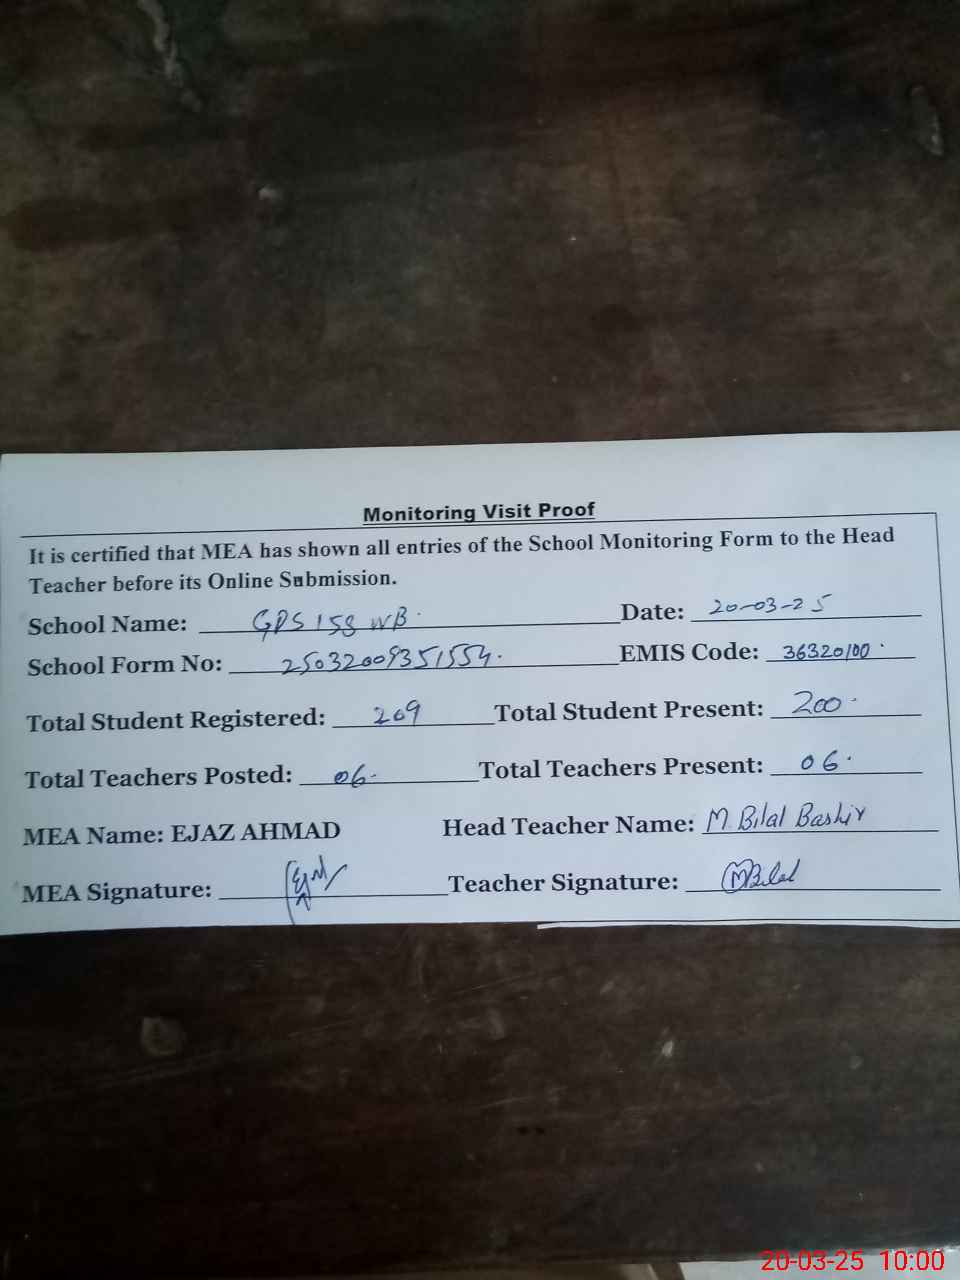 Monitoring Visit Proof
It is certified that MEA has shown all entries of the School Monitoring Form to the Head
Teacher before its Online Submission.
School Name: GPS 158 WB. Date: 20-03-25
School Form No: 25032009351554. EMIS Code: 36320100.
Total Student Registered: 209 Total Student Present: 200.
Total Teachers Posted: 06. Total Teachers Present: 06.
MEA Name: EJAZ AHMAD Head Teacher Name: M. Bilal Bashir
MEA Signature: Teacher Signature: MBilal
20-03-25 10:00